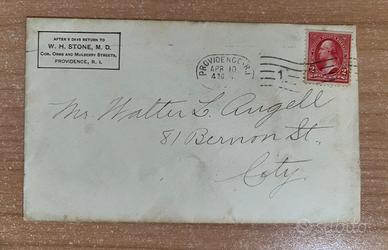 AFTER 5 DAYS RETURN TO
W. H. STONE, M. D.
COR. ORMS AND MULBERRY STREETS,
PROVIDENCE, R. I.
PROVIDENCE, R.I.
APR 10
1
2 2
Mr. Walter L. Angell
81 Bernon St.
City.
subito